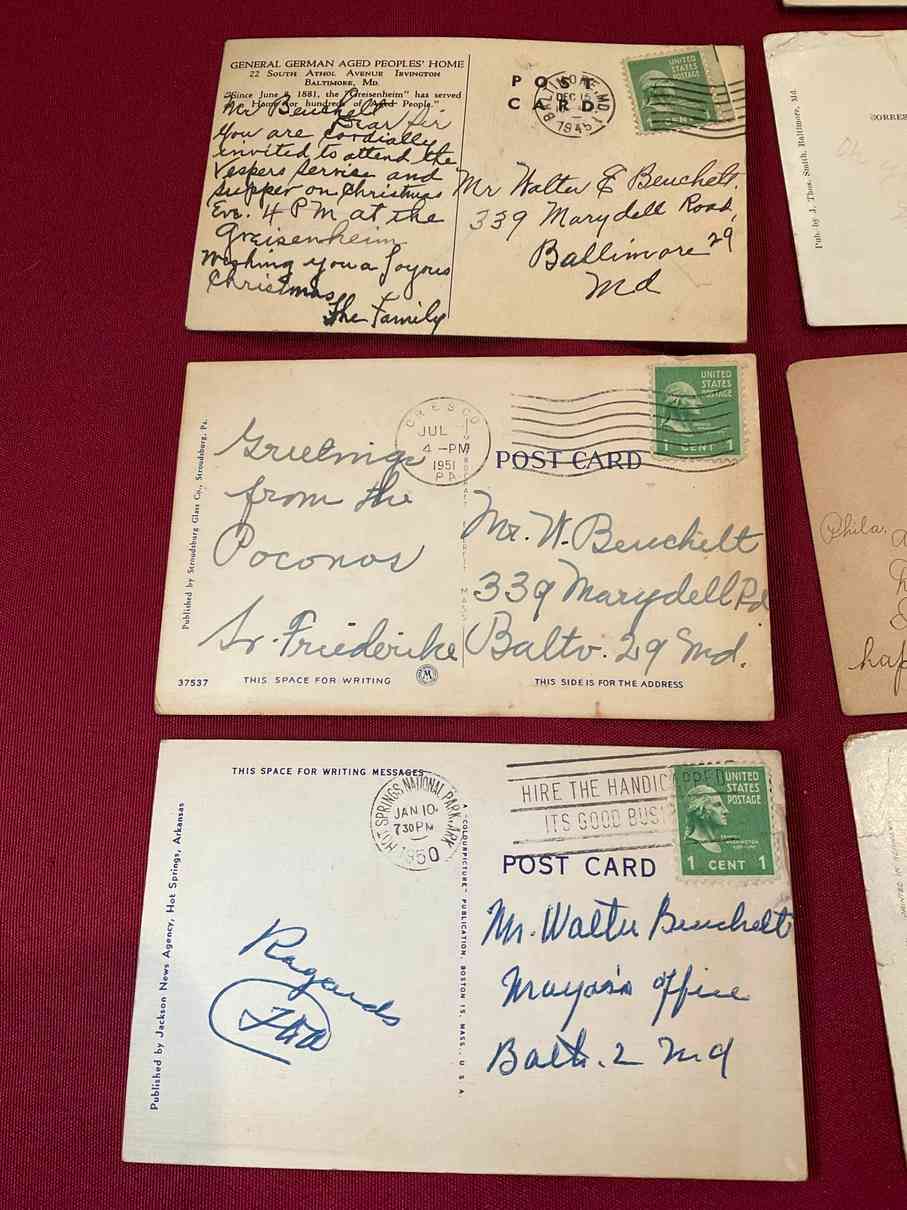 GENERAL GERMAN AGED PEOPLES' HOME
22 SOUTH ATHOL AVENUE IRVINGTON
BALTIMORE, MD.
"Since June 8, 1881, the "Greisenheim" has served
as Home for hundreds of Aged People."
Mr Beuchelt
Dear Sir
You are cordially
invited to attend the
Vespers Service and
Supper on Christmas
Eve. 4 PM at the
Greisenheim
Wishing you a Joyous
Christmas
The Family
POST
CARD
BALTIMORE, MD.
DEC 15
1945
UNITED
STATES
POSTAGE
1 CENT 1
Mr Walter E Beuchelt.
339 Marydell Road,
Baltimore 29
Md
Published by Stroudsburg Glass Co., Stroudsburg, Pa.
Greetings
from the
Poconos
Sr. Friederike
37537
THIS SPACE FOR WRITING
CRESCO
JUL
4 -PM
1951
PA
POST CARD
UNITED
STATES
POSTAGE
1 CENT 1
Mr. W. Beuchelt
339 Marydell Rd
Balto. 29 Md.
THIS SIDE IS FOR THE ADDRESS
Published by Jackson News Agency, Hot Springs, Arkansas
THIS SPACE FOR WRITING MESSAGES
Regards
HOT SPRINGS NATIONAL PARK, ARK.
JAN 10
7 30 PM
1950
A "COLOURPICTURE" PUBLICATION, BOSTON 15, MASS., U.S.A.
HIRE THE HANDICAPPED
ITS GOOD BUSI
POST CARD
UNITED
STATES
POSTAGE
WASHINGTON
1 CENT 1
Mr. Walter Beuchelt
Mayor's office
Balto. 2 Md
Pub. by J. Thos. Smith, Baltimore, Md.
ORRES
Phila.
hap